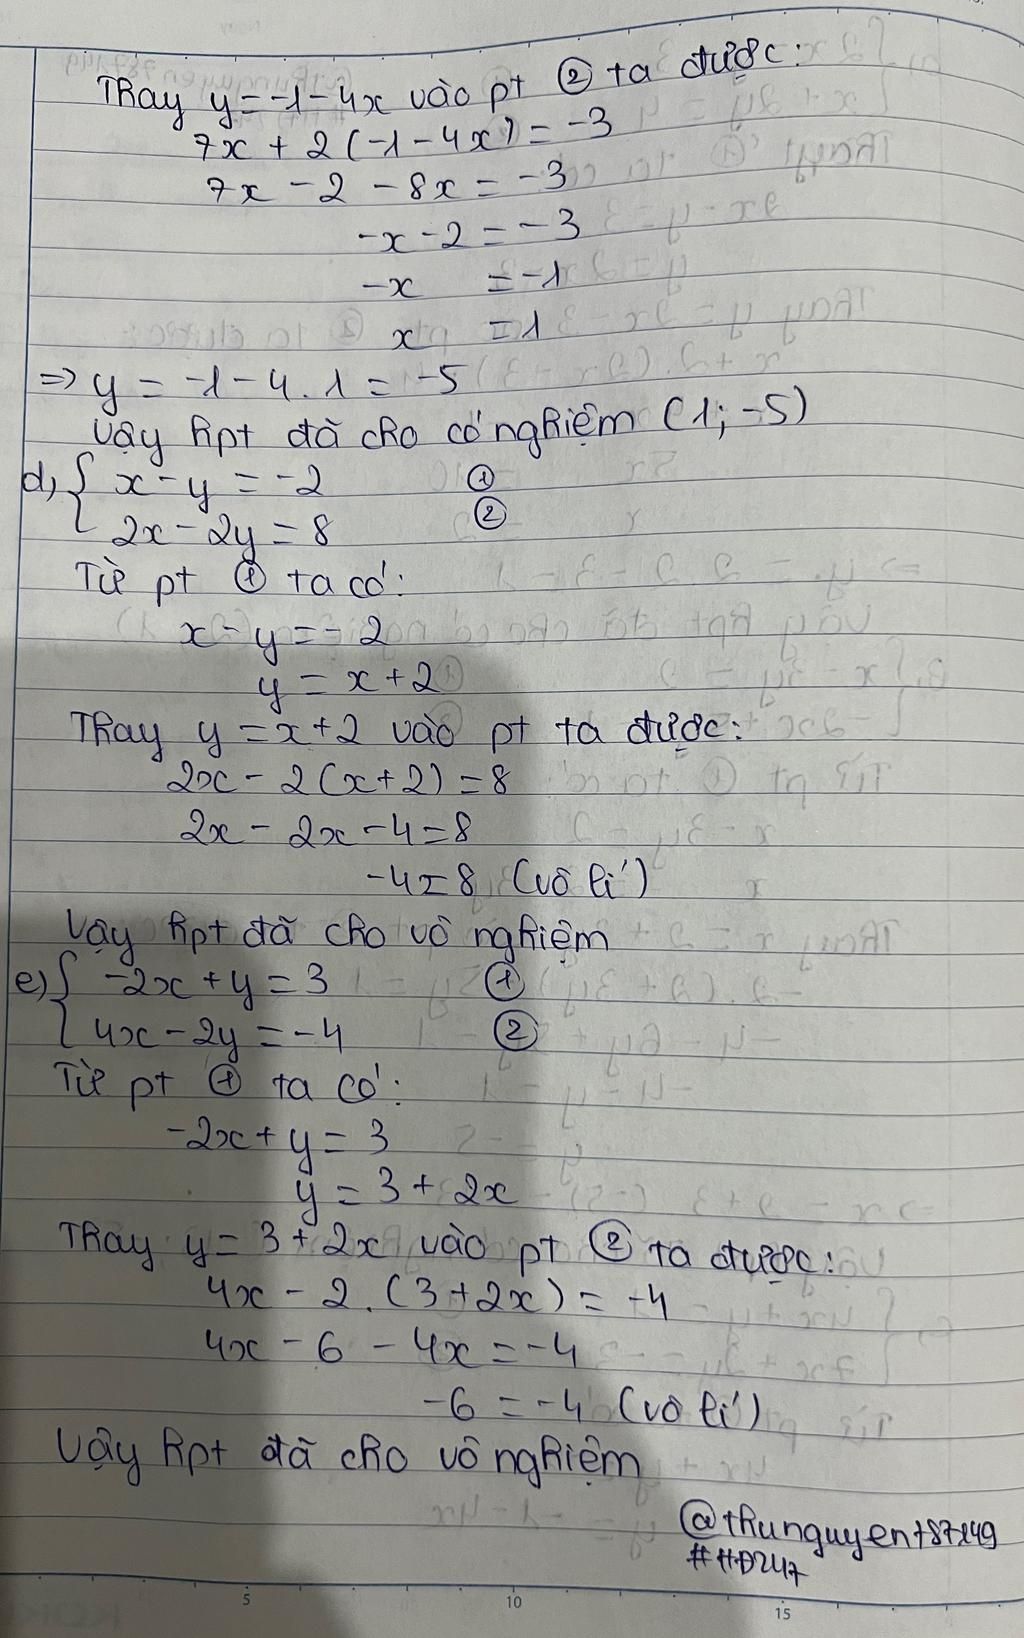 Thay y = -1 - 4x vào pt ② ta được:
7x + 2(-1 - 4x) = -3
7x - 2 - 8x = -3
-x - 2 = -3
-x = -1
x = 1
=> y = -1 - 4.1 = -5
Vậy hpt đã cho có nghiệm (1; -5)
d, { x - y = -2 ①
2x - 2y = 8 ②
Từ pt ① ta có:
x - y = -2
y = x + 2
Thay y = x + 2 vào pt ta được:
2x - 2(x + 2) = 8
2x - 2x - 4 = 8
-4 = 8 (vô lí)
Vậy hpt đã cho vô nghiệm
e) { -2x + y = 3 ①
4x - 2y = -4 ②
Từ pt ① ta có:
-2x + y = 3
y = 3 + 2x
Thay y = 3 + 2x vào pt ② ta được:
4x - 2.(3 + 2x) = -4
4x - 6 - 4x = -4
-6 = -4 (vô lí)
Vậy hpt đã cho vô nghiệm
#HĐ247
5 10 15